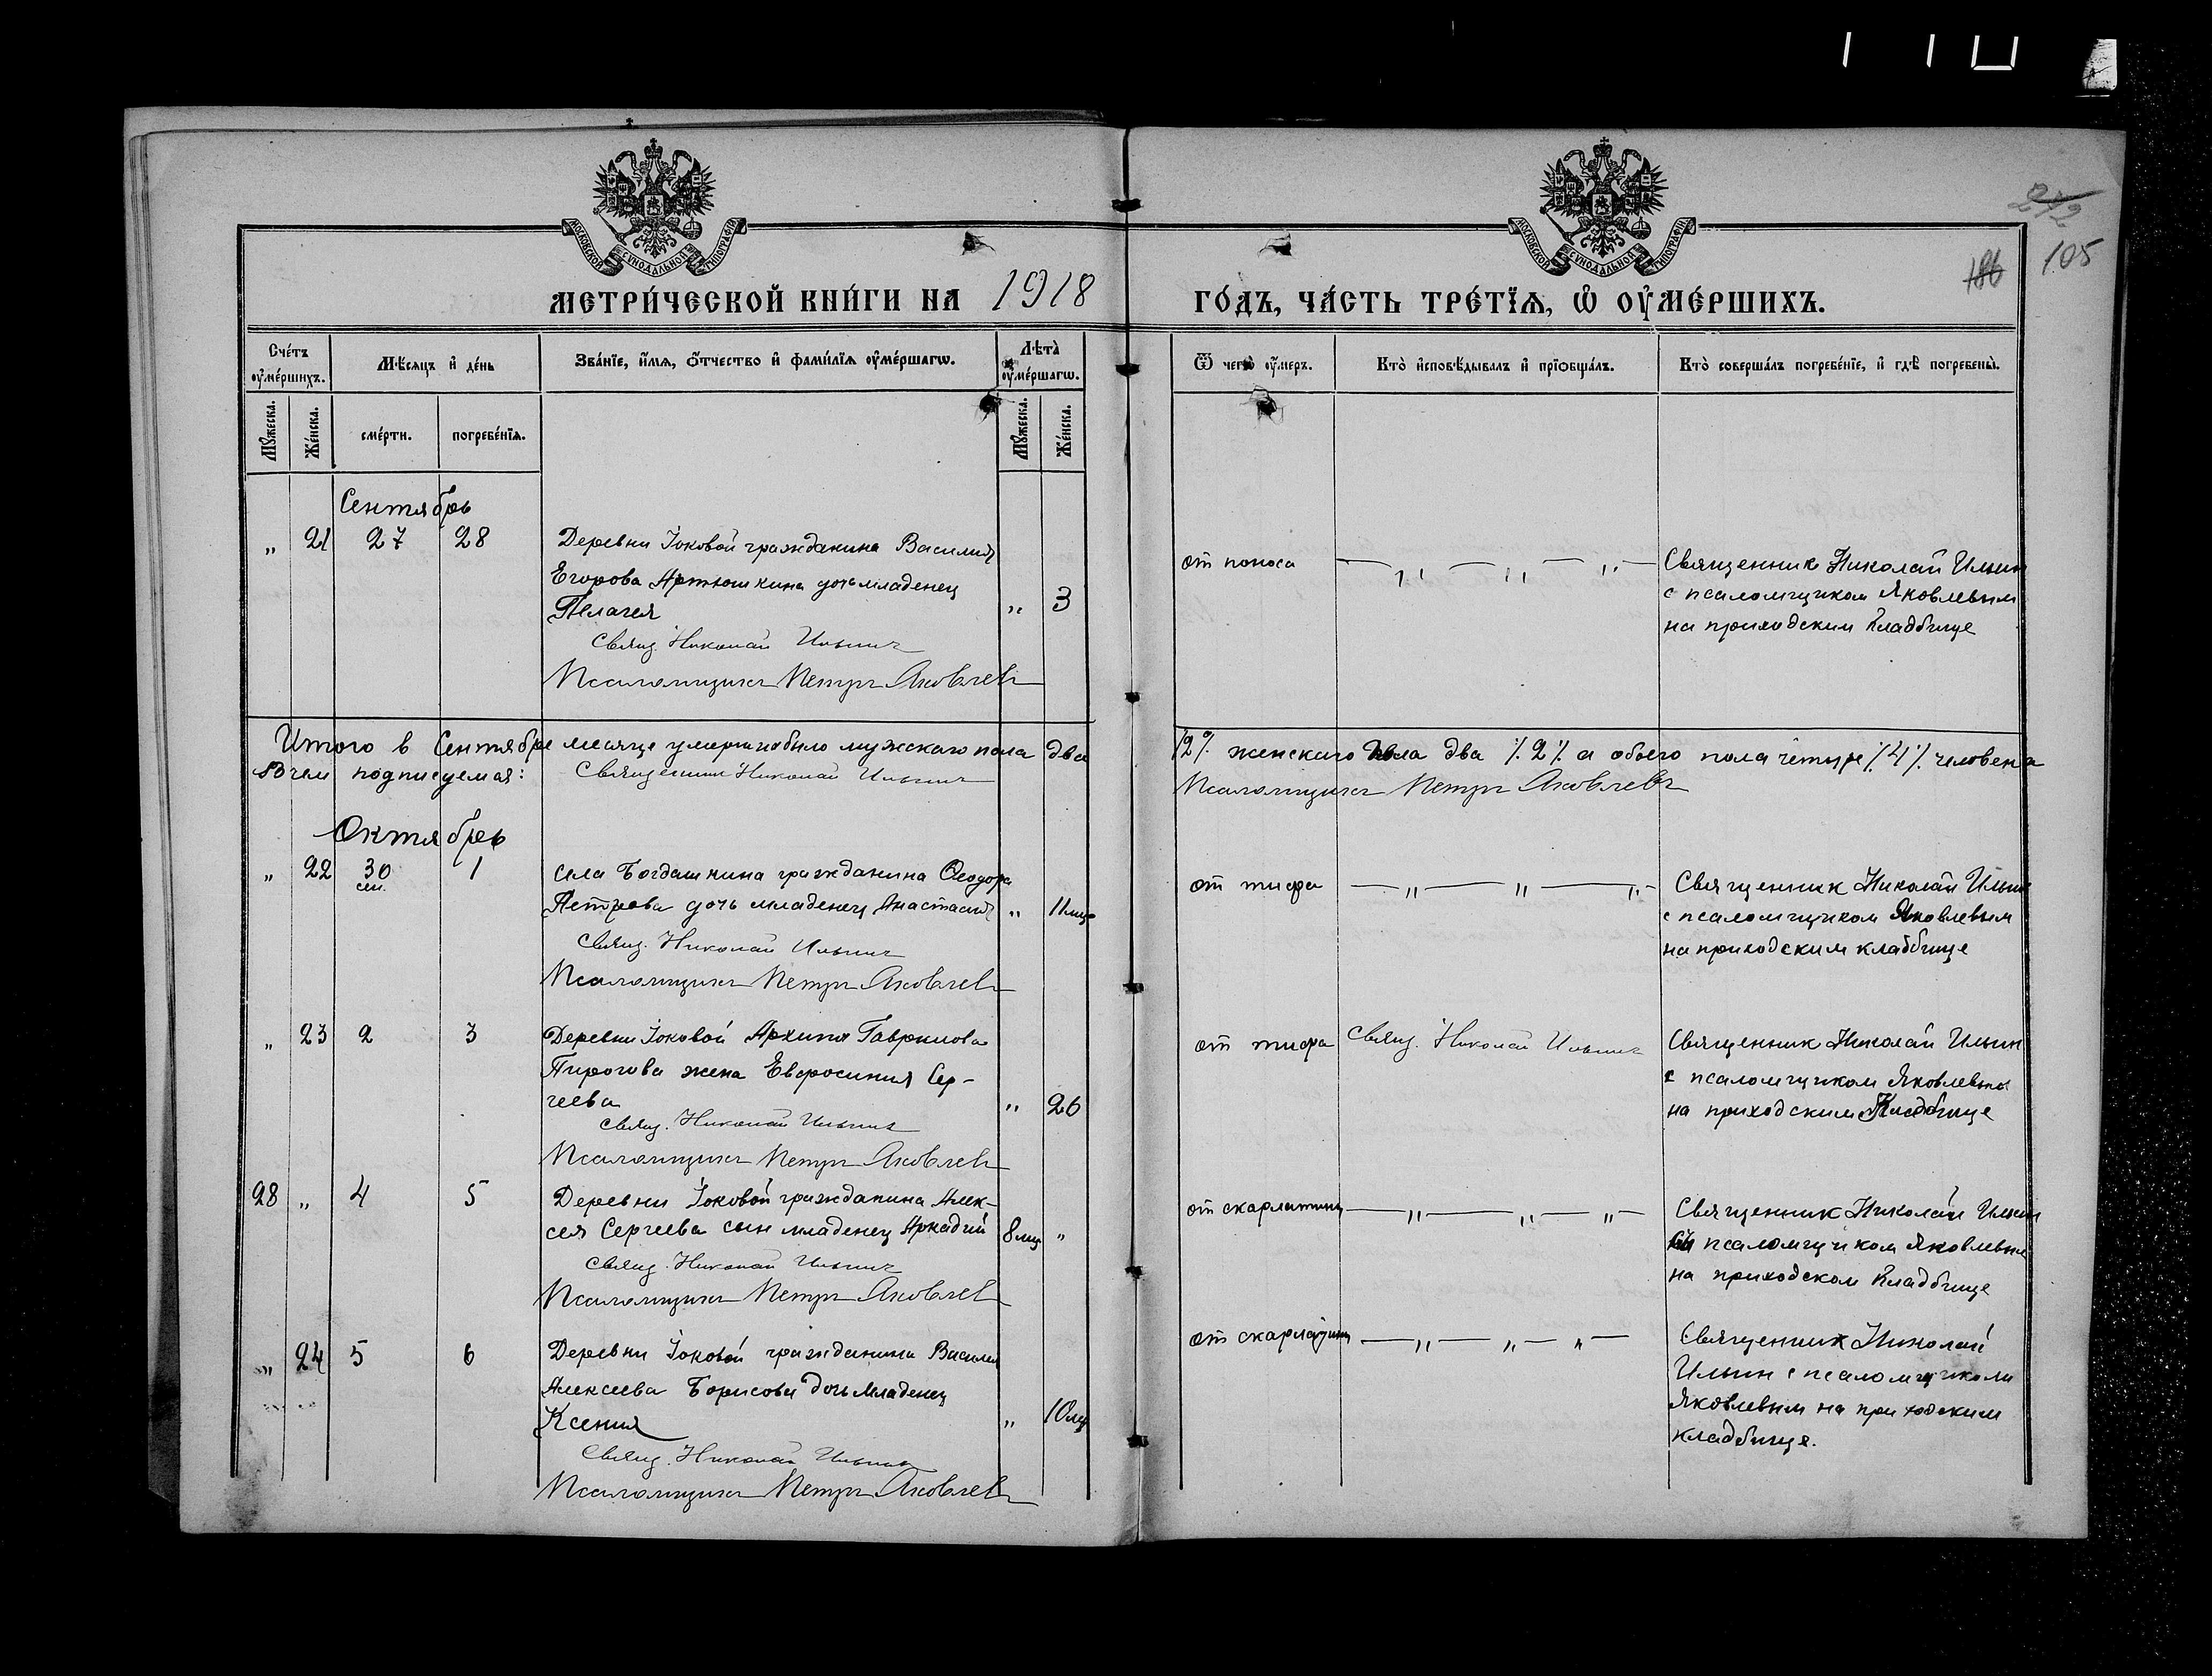 МОСКОВСКОЙ СѴНОДАЛЬНОЙ ТИПОГРАФІИ
МОСКОВСКОЙ СѴНОДАЛЬНОЙ ТИПОГРАФІИ
105
186
МЕТРИ́ЧЕСКОЙ КНИ́ГИ НА 1918 ГО́ДЪ, ЧА́СТЬ ТРЕ́ТЇѦ, Ѡ҆ ОУ҆МЕ́РШИХЪ.
Сче́тъ оу҆ме́ршихъ.
Мѣ́сѧцъ и҆ де́нь
Зва́нїе, и҆́мѧ, ѻ҆́тчество и҆ фами́лїѧ оу҆ме́ршагѡ.
Лѣ́та оу҆ме́ршагѡ.
Ѿ чегѡ̀ оу҆́меръ.
Кто̀ и҆сповѣ́дывалъ и҆ прїѻбща́лъ.
Кто̀ соверша́лъ погребе́нїе, и҆ гдѣ̀ погребены̀.
Мꙋ́жеска.
Же́нска.
сме́рти.
погребе́нїѧ.
Мꙋ́жеска.
Же́нска.
Сентябрь
„ 21 27 28 Деревни Іоковой гражданина Василия
Егорова Артюшкина дочь младенец
Пелагея „ 3
Свящ. Николай Ильин
Псаломщикъ Петръ Яковлев
от поноса — „ — „ — „ —
Священник Николай Ильин
с псаломщиком Яковлевым
на приходским кладбище
Итого в Сентябре месяце умерших было мужскаго пола два /2/. женскаго пола два /.2/. а обоего пола четыре /.4/. человека
В чем подписуемся: Священник Николай Ильин Псаломщикъ Петръ Яковлевъ
Октябрь
„ 22 30 сен. 1 села Богдашкина гражданина Феодора
Петрова дочь младенец Анастасия „ 11 мц
Свящ. Николай Ильин
Псаломщикъ Петръ Яковлев
от тифа — „ — „ — „ —
Священник Николай Ильин
с псаломщиком Яковлевым
на приходским кладбище
„ 23 2 3 Деревни Іоковой Архипа Гаврилова
Пирогова жена Евфросиния Сер-
геева „ 26
Свящ. Николай Ильин
Псаломщикъ Петръ Яковлев
от тифа Свящ. Николай Ильин
Священник Николай Ильин
с псаломщиком Яковлевым
на приходским Кладбище
28 „ 4 5 Деревни Іоковой гражданина Алек-
сея Сергеева сын младенец Аркадий 8 мц „
Свящ. Николай Ильин
Псаломщикъ Петръ Яковлев
от скарлатины — „ — „ — „ —
Священник Николай Ильин
псаломщиком Яковлевым
на приходском кладбище
„ 24 5 6 Деревни Іоковой гражданина Василия
Алексеева Борисова дочь младенец
Ксения „ 10 мц
Свящ. Николай Ильин
Псаломщикъ Петръ Яковлев
от скарлатины — „ — „ — „ —
Священник Николай
Ильин с псаломщиком
Яковлевым на приходским
кладбище.